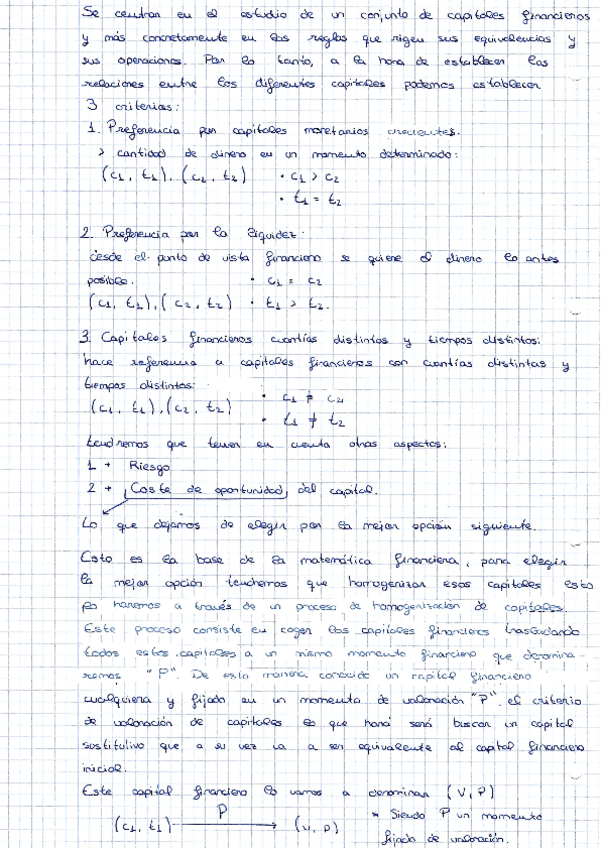 Se centran en el estudio de un conjunto de capitales financieros
y más concretamente en las reglas que rigen sus equivalencias y
sus operaciones. Por lo tanto, a la hora de establecer las
relaciones entre los diferentes capitales podemos establecer
3 criterios:
1. Preferencia por capitales monetarios crecientes.
> cantidad de dinero en un momento determinado:
(C1, t1), (C2, t2) · C1 > C2
· t1 = t2
2. Preferencia por la liquidez:
desde el punto de vista financiero se quiere el dinero lo antes
posible. · C1 = C2
(C1, t1), (C2, t2) · t1 > t2.
3. Capitales financieros cuantías distintas y tiempos distintos:
hace referencia a capitales financieros con cuantías distintas y
tiempos distintos: · C1 ≠ C2
(C1, t1), (C2, t2) · t1 ≠ t2
tendremos que tener en cuenta otros aspectos:
1 + Riesgo
2 + Coste de oportunidad, del capital.
Lo que dejamos de elegir por la mejor opción siguiente.
Esto es la base de la matemática financiera, para elegir
la mejor opción tendremos que homogenizar esos capitales esto
lo haremos a través de un proceso de homogenización de capitales.
Este proceso consiste en coger los capitales financieros trasladando
todos estos capitales a un mismo momento financiero que denomina-
remos "P". De esta manera conocido un capital financiero
cualquiera y fijado en un momento de valoración "P", el criterio
de valoración de capitales lo que hará será buscar un capital
sustitutivo que a su vez va a ser equivalente al capital financiero
inicial.
Este capital financiero lo vamos a denominar (V, P)
P * Siendo P un momento
(C1, t1) → (V, P) fijado de valoración.